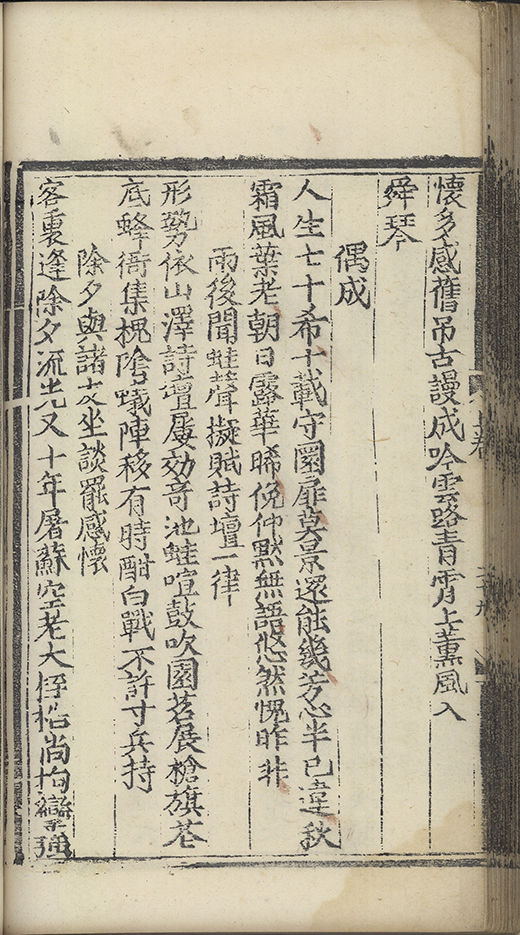 懷多感舊吊古謾成吟雲路青霄上薰風入
舜琴
偶成
人生七十希十載守圜扉莫景還能幾芳心半已違秋
霜風葉老朝日露華晞俛仰默無語悠然愧昨非
雨後聞蛙聲擬賦詩壇一律
形勢依山澤詩壇屢効奇池蛙喧鼓吹園茗展槍旗花
底蜂衙集槐陰蟻陣移有時酣白戰不許寸兵持
除夕與諸友坐談罷感懷
客裏逢除夕流光又十年屠蘇空老大桎梏尚拘攣強